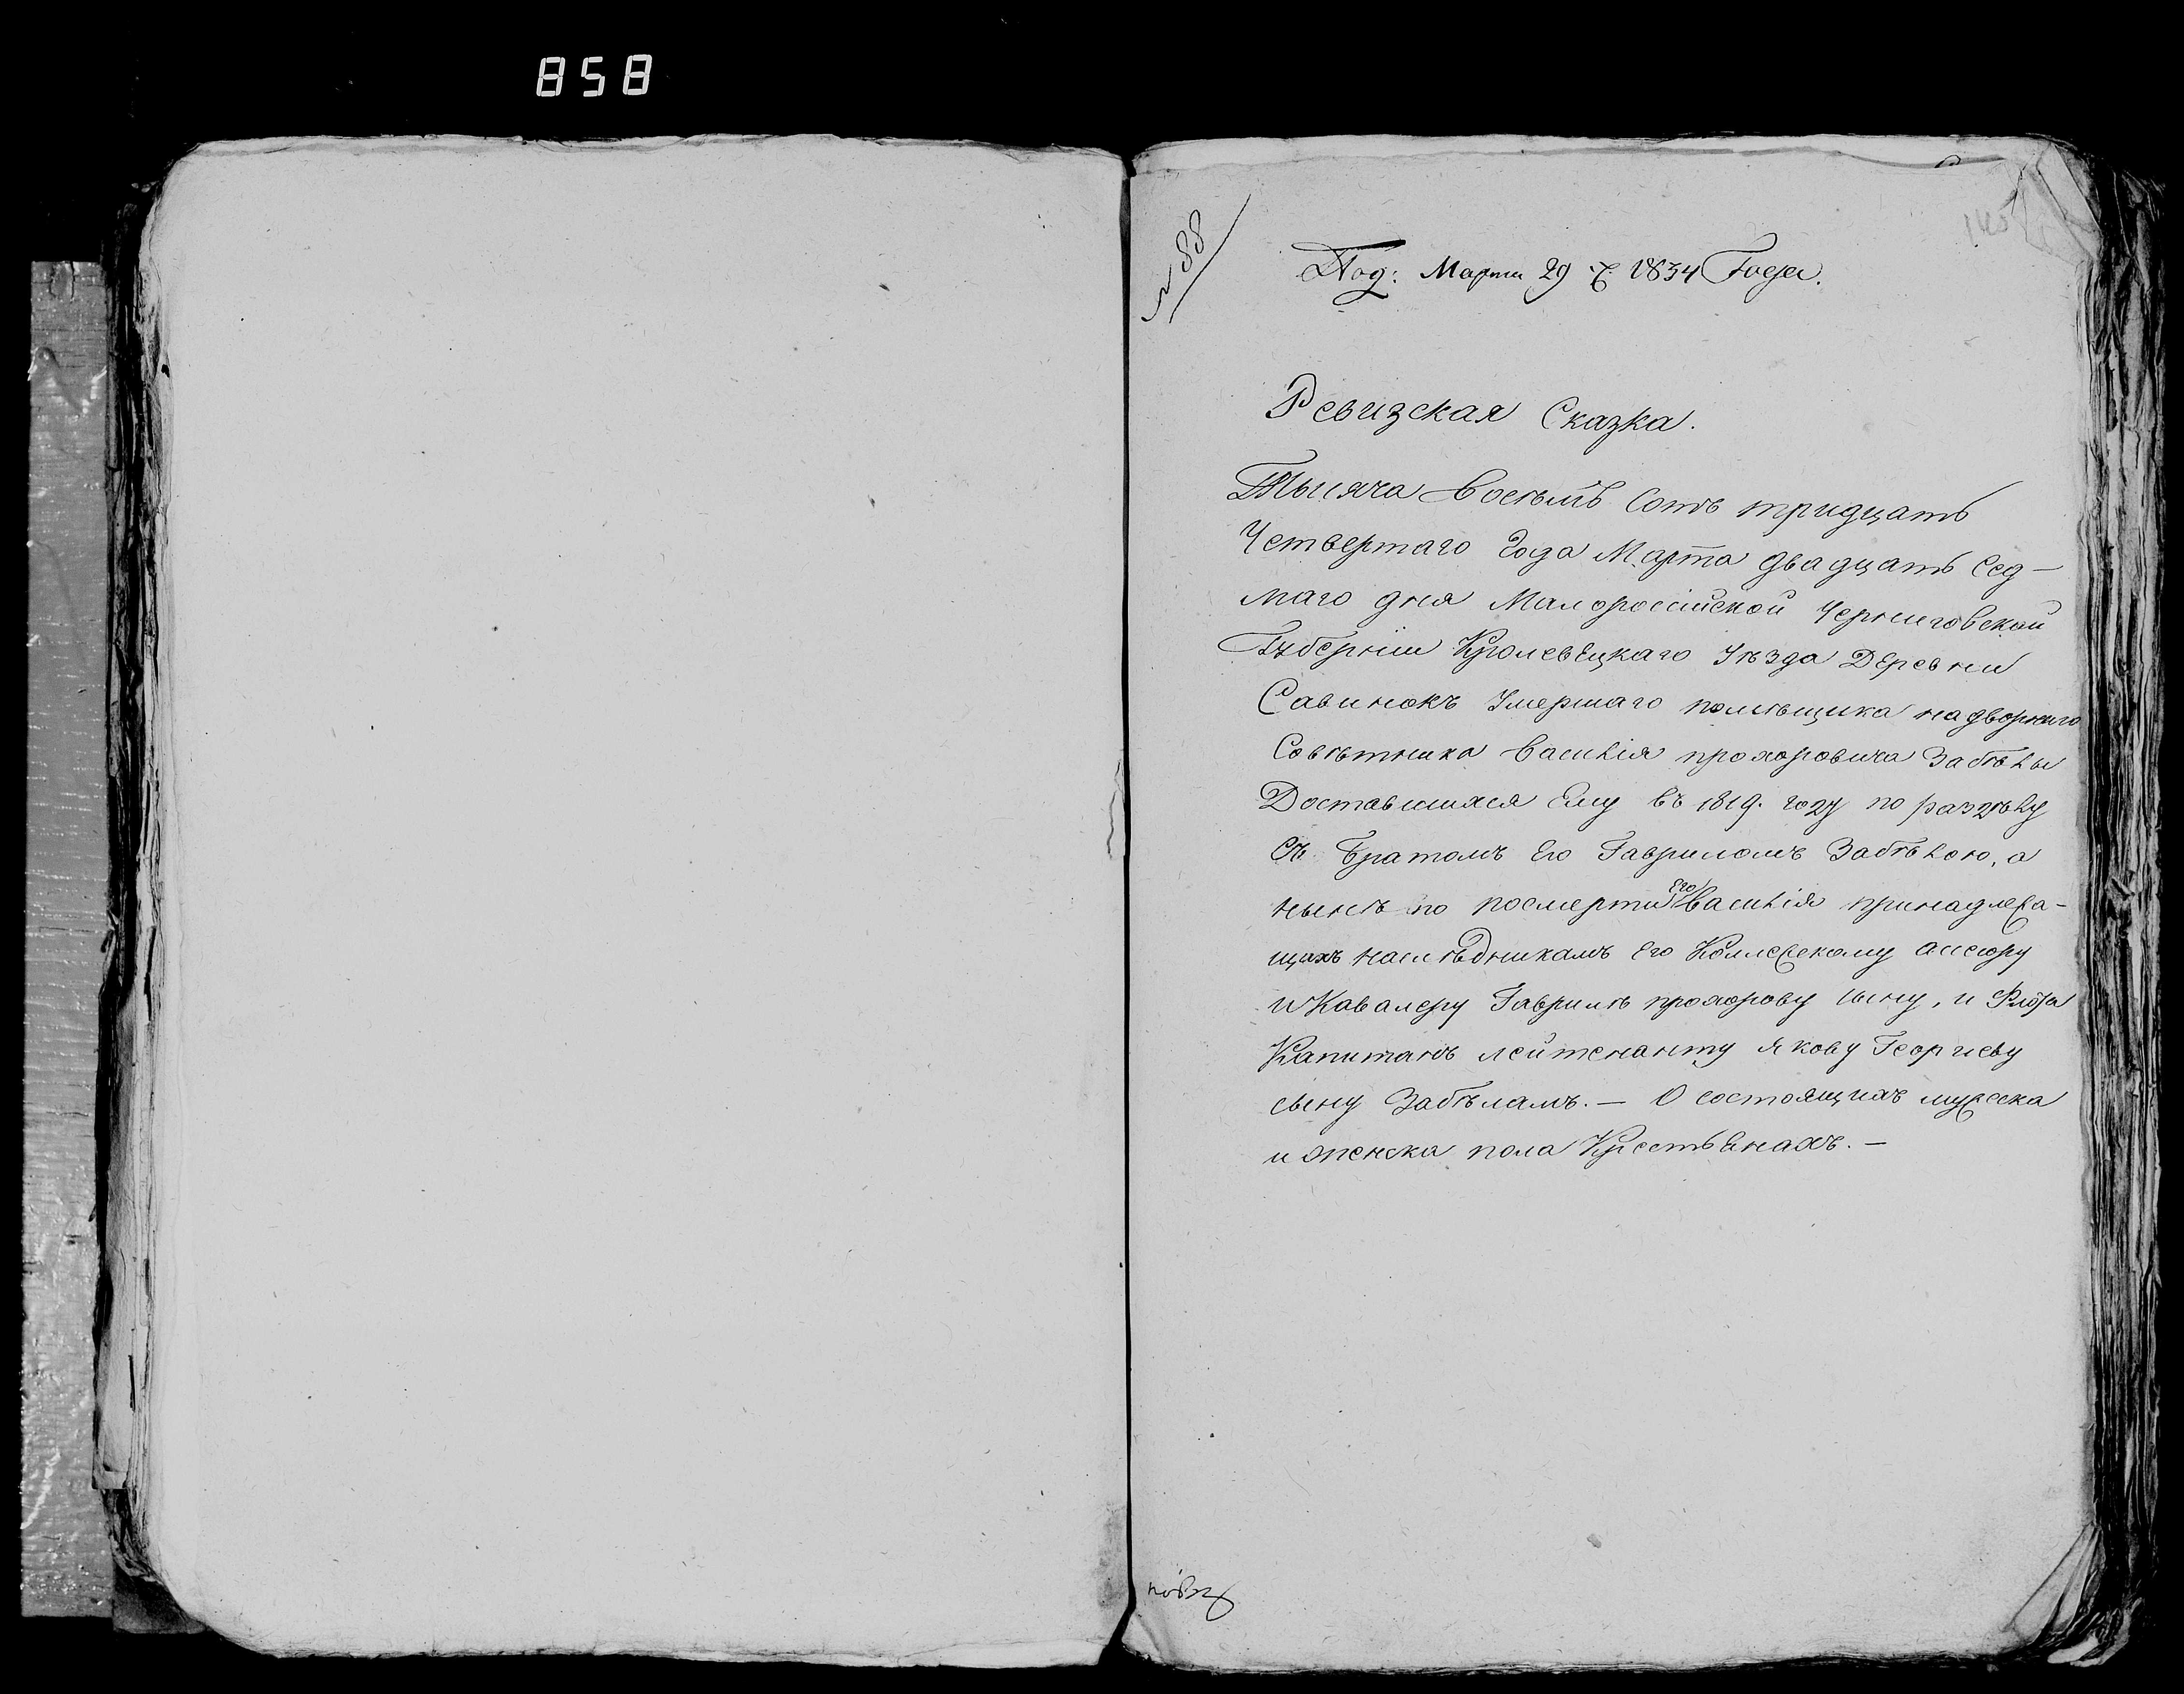 858
№ 88
Под: Марта 29 д. 1834 Года.
Ревизская Сказка.
Тысяча Восемъ Сотъ тридцать
Четвертаго Года Марта двадцать Сед-
маго дня Малороссійской Черниговской
Губерніи Кролевецкаго Уѣзда Деревни
Савинокъ Умершаго помѣщика надворнаго
Совѣтника Василія прохоровича Забѣлы
Доставшихся Ему въ 1819. году по раздѣлу
Съ Братомъ Его Гавриломъ Забѣлою, а
нынѣ по посмерти Его Василія принадлежа-
щихъ наслѣдникамъ Его Коллежскому ассесору
и Кавалеру Гаврилѣ прохорову сыну, и Флота
Капитанъ лейтенанту Якову Георгиеву
сыну Забѣламъ. — О состоящихъ мужеска
и женска пола Крестьянахъ. —